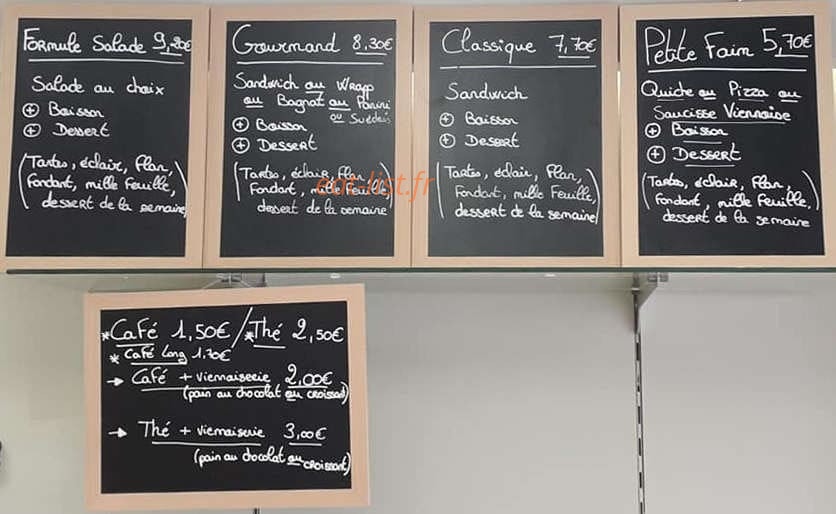 Formule Salade 9,20€
Salade au choix
⊕ Boisson
⊕ Dessert
(Tartes, éclair, flan,
fondant, mille feuille,
dessert de la semaine)
Gourmand 8,30€
Sandwich ou Wrapp
ou Bagnat ou Panini
ou Suédois
⊕ Boisson
⊕ Dessert
(Tartes, éclair, flan,
fondant, mille feuille,
dessert de la semaine)
Classique 7,70€
Sandwich
⊕ Boisson
⊕ Dessert
(Tartes, éclair, flan,
fondant, mille feuille,
dessert de la semaine)
Petite Faim 5,70€
Quiche ou Pizza ou
Saucisse Viennoise
⊕ Boisson
⊕ Dessert
(Tartes, éclair, flan,
fondant, mille feuille,
dessert de la semaine)
eat-list.fr
*Café 1,50€/*Thé 2,50€
* Café Long 1,70€
→ Café + viennoiserie 2,00€
(pain au chocolat ou croissant)
→ Thé + viennoiserie 3,00€
(pain au chocolat ou croissant)